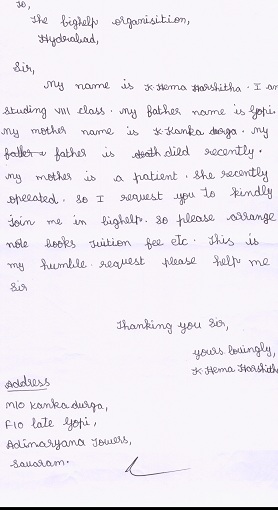 To,
The bighelp organisition,
Hydrabad,
Sir,
My name is K. Hema Harshitha. I am
studing VIII class. my father name is Gopi.
my mother name is K. Kanka durga. my
father father is death died recently.
my mother is a patient. she recently
opeeated. So I request you to kindly
Join me in bighelp. So please arrange
note books Tuition fee etc. This is
my humble. request please help me
Sir
Thanking you Sir,
yours lovingly,
K Hema Harshitha
Address
M/O Kanka durga,
F/O late Gopi,
Adinaryana Towers,
Savaram.